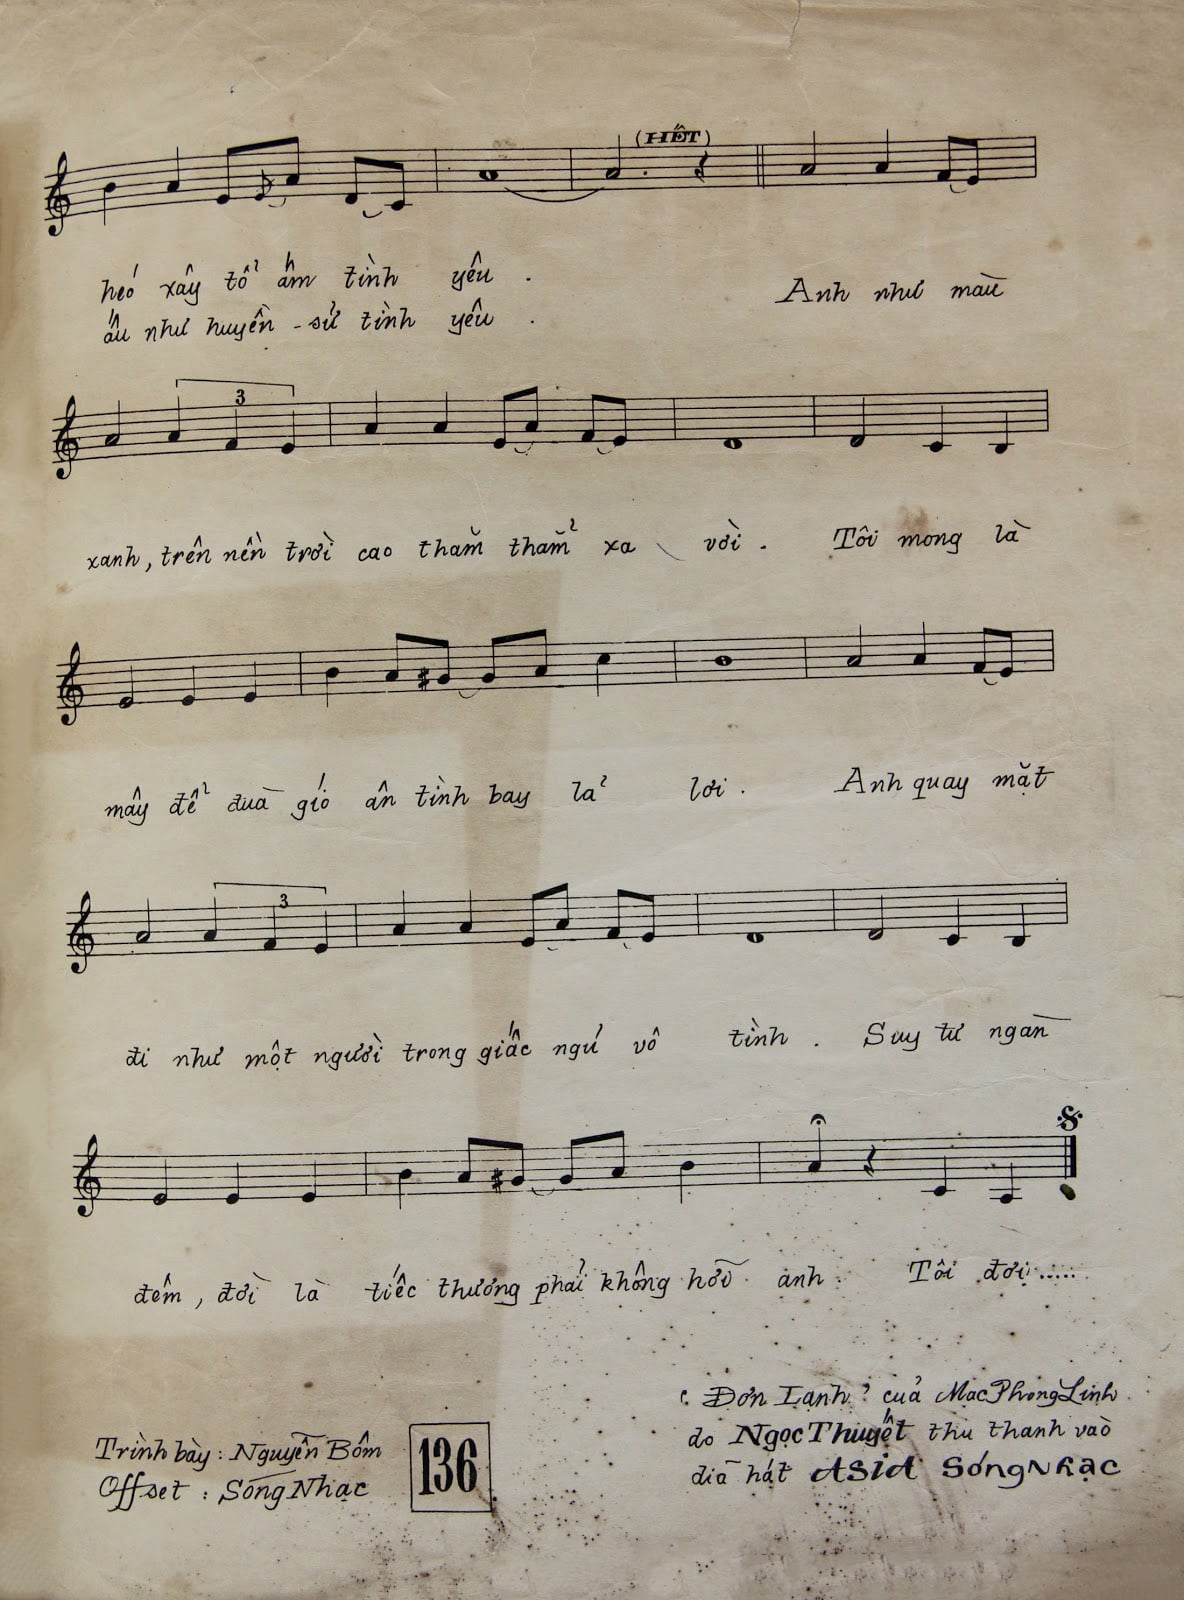 (HẾT)
héo xây tổ ấm tình yêu .
ấu như huyền - sử tình yêu .
Anh như màu
3
xanh, trên nền trời cao thăm thẳm xa vời . Tôi mong là
mây để đùa gió ân tình bay lả lơi . Anh quay mặt
3
đi như một người trong giấc ngủ vô tình . Suy tư ngàn
đêm, đời là tiếc thương phải không hỡi anh . Tôi đợi .....
Trình bày : Nguyễn Bôm
Offset : Sóng Nhạc
136
"Đơn Lạnh" của Mạc Phong Linh
do Ngọc Thuyết thu thanh vào
dĩa hát ASIA Sóng Nhạc